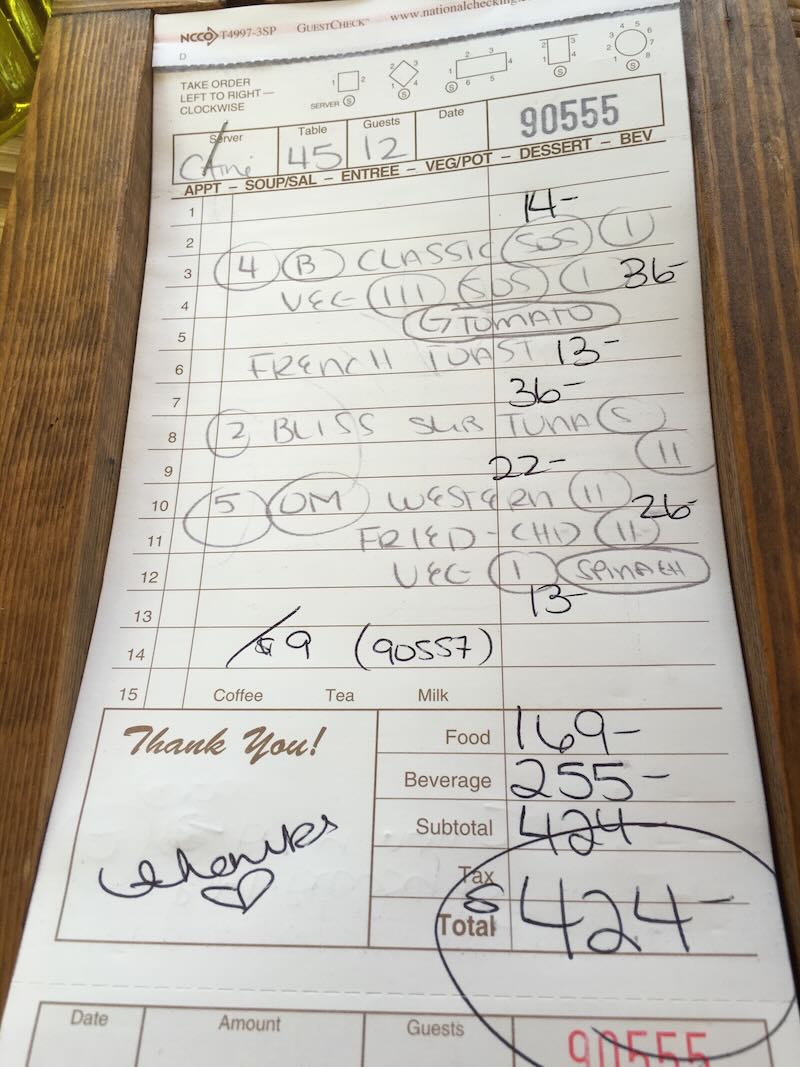 NCCO T4997-3SP GUESTCHECK™ www.nationalchecking
D
TAKE ORDER
LEFT TO RIGHT—
CLOCKWISE
SERVER S
1 2
S
2 3
1 4
S
2 3
1 4
6 5
S
2 3
1 4
S
4 5
3 6
2 7
1 8
S
Server Table Guests Date
45 12 90555
APPT – SOUP/SAL – ENTREE – VEG/POT – DESSERT – BEV
1 14-
2
3 4 B CLASSIC SOS 1
4 VEG III SOS 1 36-
5 TOMATO
6 FRENCH TOAST 13-
7 36-
8 2 BLISS SUB TUNA S
9 22- 11
10 5 OM WESTERN 11 26-
11 FRIED - CHD 11
12 VEG 1 SPINACH
13 13-
14 9 (90557)
15 Coffee Tea Milk
Thank You!
thanks
Food 169-
Beverage 255-
Subtotal 424-
Tax
Total 424-
Date Amount Guests 90555